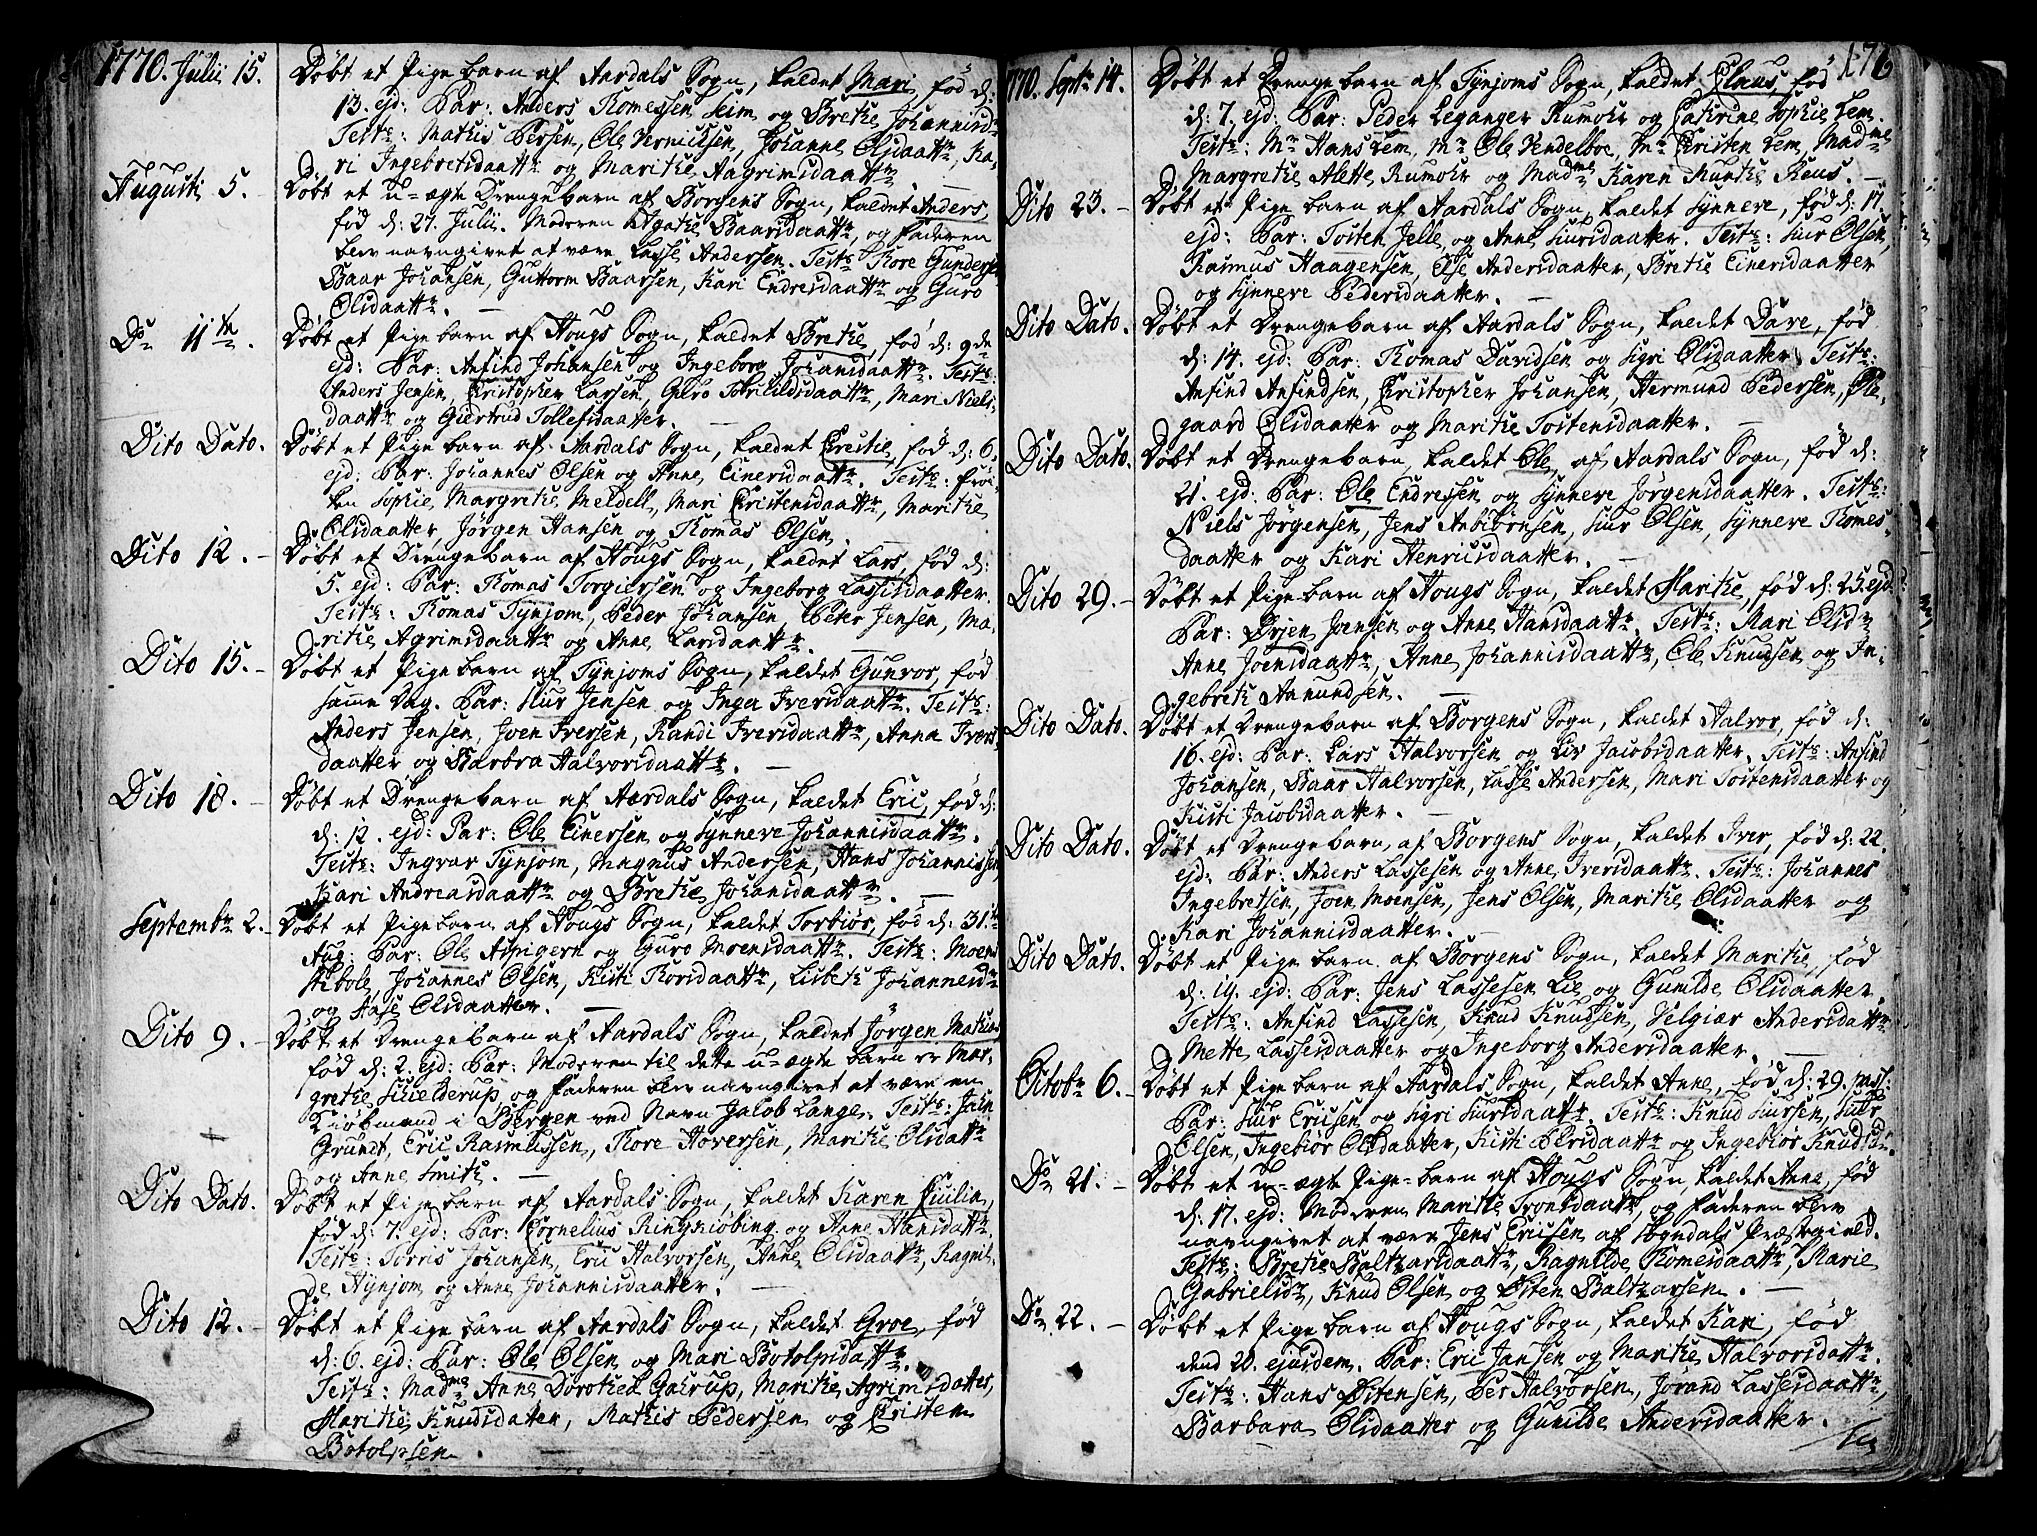 1770. Julii 15. Døbt et Pige barn af Aardals Sogn, kaldet Mari, fød d:
13. ejd: Par: Anders Thomessen Seim og Brethe Johannisdr
Test: Mathis Persen, Ole Hermichsen, Johanne Olsdaattr, Ka-
ri Ingebretsdaattr og Marithe Aagrimsdaattr.
Augusti 5. Døbt et u-ægte Drengebarn af Borgens Sogn, kaldet Anders,
fød d: 27. Julii. Moderen Agathe Baarsdaattr, og Faderen
blev navngivet at være Lasse Andersen. Tests Thore Gundersen
Baar Johansen, Guttorm Baarsen, Kari Endresdaattr og Guro
Olsdaattr.
Do 11te. Døbt et Pige barn af Hougs Sogn, kaldet Brethe, fød d: 9de
ejd: Par: Anfind Johansen og Ingeborg Johansdaattr. Tests:
Anders Jensen, Christopher Larsen, Guro Torkildsdaattr, Mari Niels-
daattr og Giertrud Tollefsdaatter.
Dito Dato. Døbt et Pige barn af Aardals Sogn, kaldet Crestie, fød d: 6.
ejd: Par: Johannes Olsen og Anne Einersdaattr. Tests: Frøi-
ken Sophie Margrethe Meldell, Mari Christensdaattr, Marithe
Olsdaatter, Jørgen Hansen og Thomas Olsen.
Dito 12. Døbt et Drengebarn af Hougs Sogn, kaldet Lars, fød d:
5. ejd: Par: Thomas Torgiersen og Ingeborg Lassesdaatter.
Tests: Thomas Tynjom, Peder Johansen, Peter Jensen, Ma-
rithe Agrimsdaattr og Anne Larsdaattr.
Dito 15. Døbt et Pige barn af Tynjoms Sogn, kaldet Gunvor, fød
samme Dag. Par: Siur Jensen og Inga Iversdaattr. Tests:
Anders Jensen, Joen Iversen, Randi Iversdaattr, Anna Ivers-
daatter og Barbra Halvorsdaattr.
Dito 18. Døbt et Drengebarn af Aardals Sogn, kaldet Eric, fød d:
d: 12. ejd: Par: Ole Einersen og Synneve Johannisdaattr.
Tests: Ingvar Tynjom, Magnus Andersen, Hans Johannissen
Kari Andreasdaattr og Brethe Johansdaattr.
Septembr 2. Døbt et Pige barn af Hougs Sogn, kaldet Torbiør, fød d: 31te
Aug: Par: Ole Aspigern og Guro Moensdaattr. Tests: Moens
Johannes Olsen, Kisti Thorsdaattr, Lisbeth Johannesdr
og Aase Olsdaatter.
Dito 9. Døbt et Drengebarn af Aardals Sogn, kaldet Jørgen Mathias
fød d: 2. ejd: Par: Moderen til dette u-ægte barn er Mar-
grethe Schielderup og Faderen blev navngivet at være en
Kiøbmand i Bergen ved Navn Jacob Lange. Tests: Jahn
Grundt, Eric Rasmussen, Thore Hoversen, Marithe Olsdattr
og Anne Smith.
Dito Dato. Døbt et Pige barn af Aardals Sogn, kaldet Karen Cicilia,
fød d: 7. ejd: Par: Cornelius Ringkiøbing og Anne Hansdattr.
Tests: Torris Johansen, Eric Halvorsen, Anne Olsdaattr, Ragnil-
de Hynjom og Anne Johannisdaatter.
Dito 12. Døbt et Pige barn af Aardals Sogn, kaldet Groe, fød
d: 6. ejd: Par: Ole Olsen og Mari Botolpsdattr.
Tests: Madme Anne Dorothea Gahrup, Marithe Agrimsdatter,
Marithe Knudsdatter, Mathis Pedersen og Christen
Botolpsen.
176
1770. Septr 14. Døbt et Drengebarn af Tynjoms Sogn, kaldet Claus, fød
d: 7. ejd: Par: Peder Leganger Rumohr og Cathrine Sophie Lem.
Tests: Mr Hans Lem, Mr Ole Vendelboe, Mr Christen Lem, Madme
Margrethe Alette Rumohr og Madme Karen Munthe Reus.
Dito 23. Døbt et Pige barn af Aardals Sogn, kaldet Synneve, fød d: 17.
ejd: Par: Tosten Jelle og Anne Siursdaatter. Tests: Siur Olsen,
Rasmus Haagensen, Else Andersdaatter, Brethe Einersdaatter
og Synneve Pedersdaatter.
Dito Dato. Døbt et Drengebarn af Aardals Sogn, kaldet Dave, fød
d: 14. ejd: Par: Thomas Davidsen og Sigri Olsdaatter. Tests:
Anfind Anfindsen, Christopher Johansen, Hermund Pedersen, Ole-
gaard Olsdaatter og Marithe Tostensdaatter.
Dito Dato. Døbt et Drengebarn, kaldet Ole, af Aardals Sogn, fød d:
21. ejd: Par: Ole Endresen og Synneve Jørgensdaatter. Tests:
Niels Jørgensen, Jens Anbiørnsen, Siur Olsen, Synneve Thomes-
daatter og Kari Henricsdaatter.
Dito 29. Døbt et Pige barn af Hougs Sogn, kaldet Marithe, fød d: 25. ejd.
Par: Ørjen Joensen og Anne Hansdaattr. Tests: Mari Olsdr
Anne Joensdaattr, Anne Johannisdaattr, Ole Knudsen og In-
gebreth Aamundsen.
Dito Dato. Døbt et Drengebarn af Borgens Sogn, kaldet Halvor, fød d:
16. ejd: Par: Lars Halvorsen og Liv Jacobsdaatter. Tests: Anfind
Johansen, Baar Halvorsen, Lasse Andersen, Mari Tostensdaatter og
Kisti Jacobsdaatter.
Dito Dato. Døbt et Drengebarn, af Borgens Sogn, kaldet Iver, fød d: 22.
ejd: Par: Anders Lassesen og Anne Iversdaattr. Tests: Johannes
Ingebretsen, Joen Moensen, Jens Olsen, Marithe Olsdaatter og
Kari Johannisdaatter.
Dito Dato. Døbt et Pige barn af Borgens Sogn, kaldet Marithe, fød
d: 19. ejd: Par: Jens Lassesen Lie og Gunilde Olsdaatter.
Tests: Anfind Lassesen, Knud Knudsen, Velgiær Andersdattr
Mette Lassesdaatter og Ingeborg Andersdaatter.
Octobr 6. Døbt et Pige barn af Aardals Sogn, kaldet Anne, fød d: 29. pass:
Par: Siur Ericsen og Sigri Siursdaattr. Tests: Knud Siursen, Siur
Olsen, Ingebiør Olsdaatter, Kisti Persdaattr og Ingebiør Knudsdr.
Do 21. Døbt et u-ægte Pige-barn af Hougs Sogn, kaldet Anne, fød
d: 17. ejd: Moderen Marithe Trondsdaattr, og Faderen blev
navngivet at være Jens Ericsen af Sogndals Præstegield.
Tests: Brethe Baltzarsdaattr, Ragnilde Thomesdaattr, Marie
Gabrielsdr, Knud Olsen og Østen Baltzarsen.
Do 22. Døbt et Pige barn af Hougs Sogn, kaldet Kari, fød
dend 20. ejusdem. Par: Eric Jansen og Marithe Halvorsdaattr.
Tests: Hans Østensen, Per Halvorsen, Jorand Lassesdaattr,
Barbara Olsdaatter og Gunilde Andersdaatter.